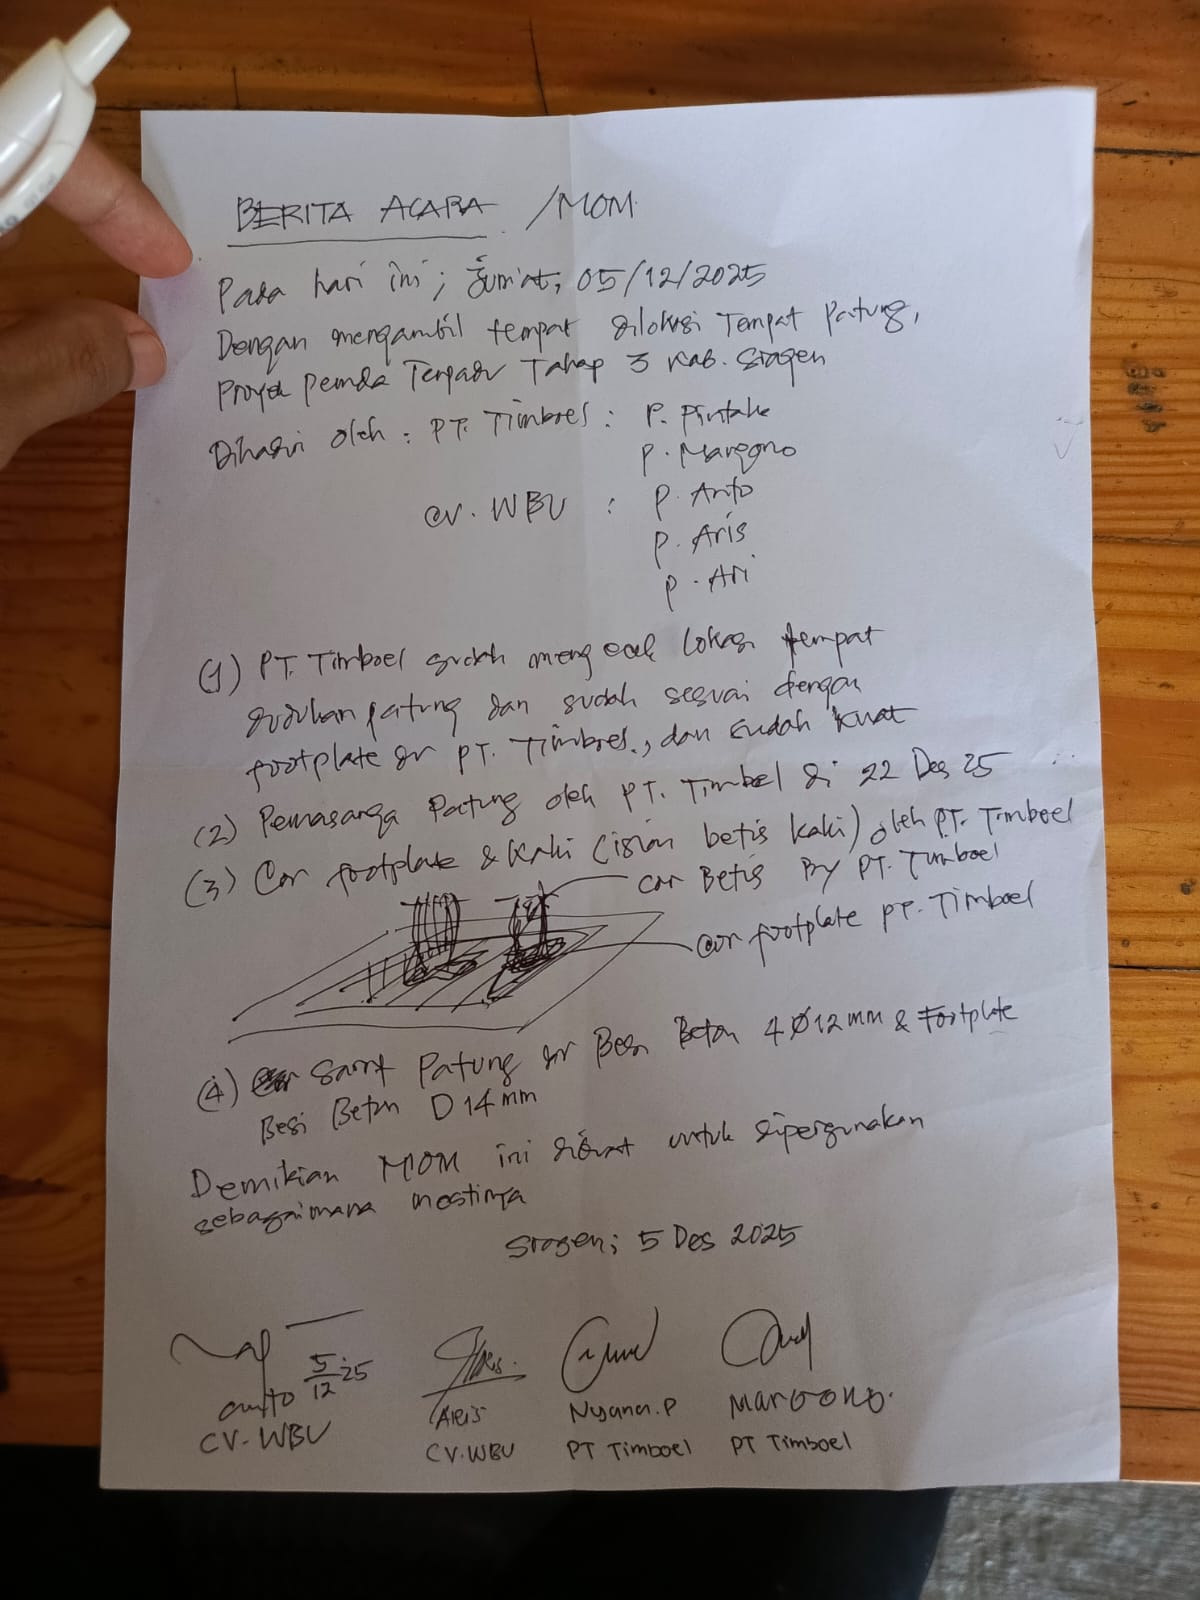 BERITA ACARA /MOM
Pada hari ini; Jum'at, 05/12/2025
Dengan mengambil tempat dilokasi Tempat Patung,
Proyek Pemda Terpadu Tahap 3 Kab. Sragen
Dihadiri oleh : PT. Timboel : P. Pintaka
P. Margono
CV. WBU : P. Anto
P. Aris
P. Ari
(1) PT. Timboel sudah mengecek lokasi tempat
dudukan patung dan sudah sesuai dengan
footplate dr PT. Timboel., dan sudah kuat
(2) Pemasanga Patung oleh PT. Timbel di 22 Des 25
(3) Cor footplate & Kaki (isian betis kaki) oleh PT. Timboel
cor Betis By PT. Timboel
cor footplate PT. Timboel
(4) Patung dr Besi Beton 4 Ø 12 mm & Footplate
Besi Beton D 14 mm
Demikian MOM ini dibuat untuk dipergunakan
sebagaimana mestinya
Sragen; 5 Des 2025
5/12 25
anto
CV. WBU
Aris
CV. WBU
Nyana. P
PT Timboel
Margono.
PT Timboel